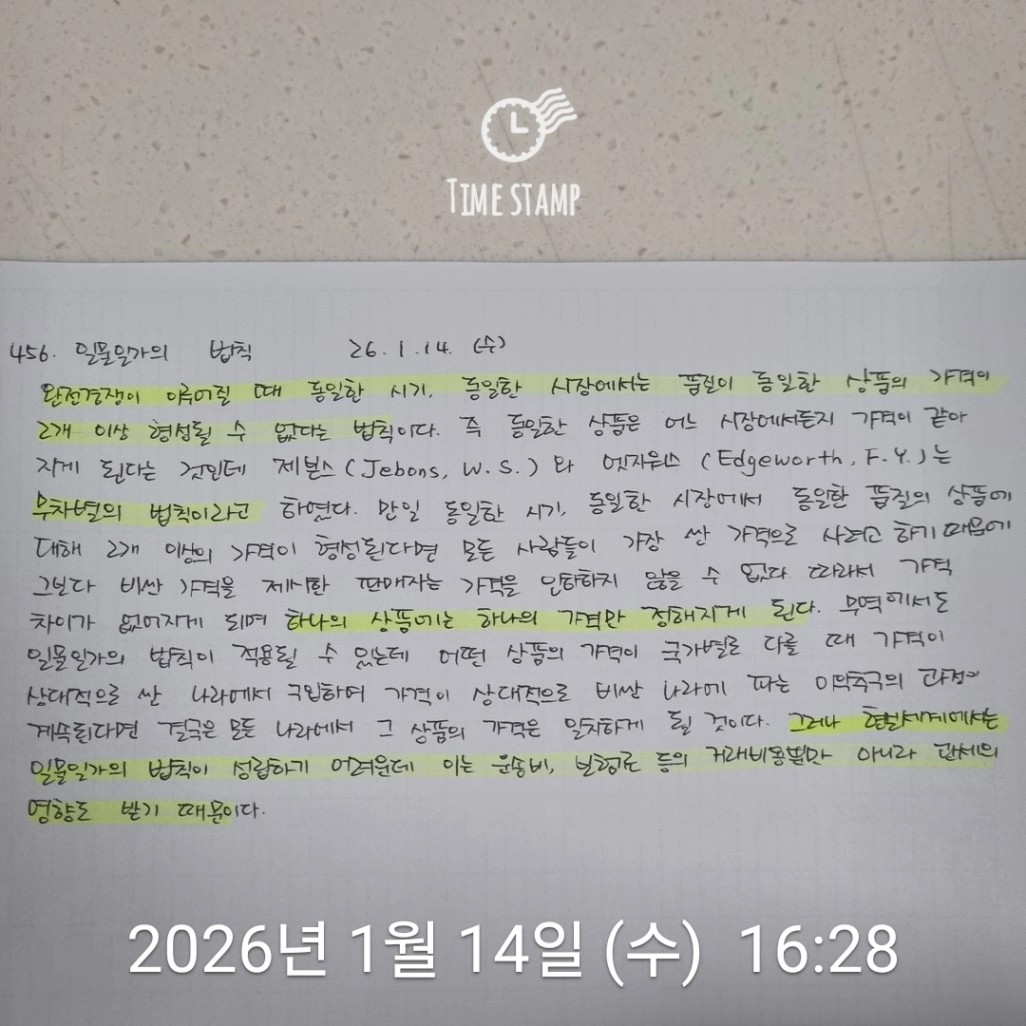 TIME STAMP
456. 일물일가의 법칙 26.1.14. (수)
완전경쟁이 이루어질 때 동일한 시기, 동일한 시장에서는 품질이 동일한 상품의 가격이
2개 이상 형성될 수 없다는 법칙이다. 즉 동일한 상품은 어느 시장에서든지 가격이 같아
지게 된다는 것인데 제본스(Jebons, W.S.)와 엣지워스(Edgeworth, F.Y.)는
무차별의 법칙이라고 하였다. 만일 동일한 시기, 동일한 시장에서 동일한 품질의 상품에
대해 2개 이상의 가격이 형성된다면 모든 사람들이 가장 싼 가격으로 사려고 하기 때문에
그보다 비싼 가격을 제시한 판매자는 가격을 인하하지 않을 수 없다. 따라서 가격
차이가 없어지게 되며 하나의 상품에는 하나의 가격만 정해지게 된다. 무역에서도
일물일가의 법칙이 적용될 수 있는데 어떤 상품의 가격이 국가별로 다를 때 가격이
상대적으로 싼 나라에서 구입하여 가격이 상대적으로 비싼 나라에 파는 이윤추구의 과정이
계속된다면 결국은 모든 나라에서 그 상품의 가격은 일치하게 될 것이다. 그러나 현실세계에서는
일물일가의 법칙이 성립하기 어려운데 이는 운송비, 보험료 등의 거래비용뿐만 아니라 관세의
영향도 받기 때문이다.
2026년 1월 14일 (수) 16:28